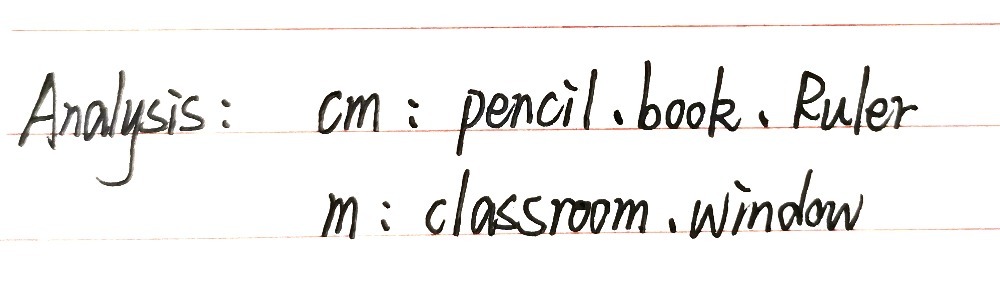 Analysis: cm: pencil、book、Ruler
m: classroom、window